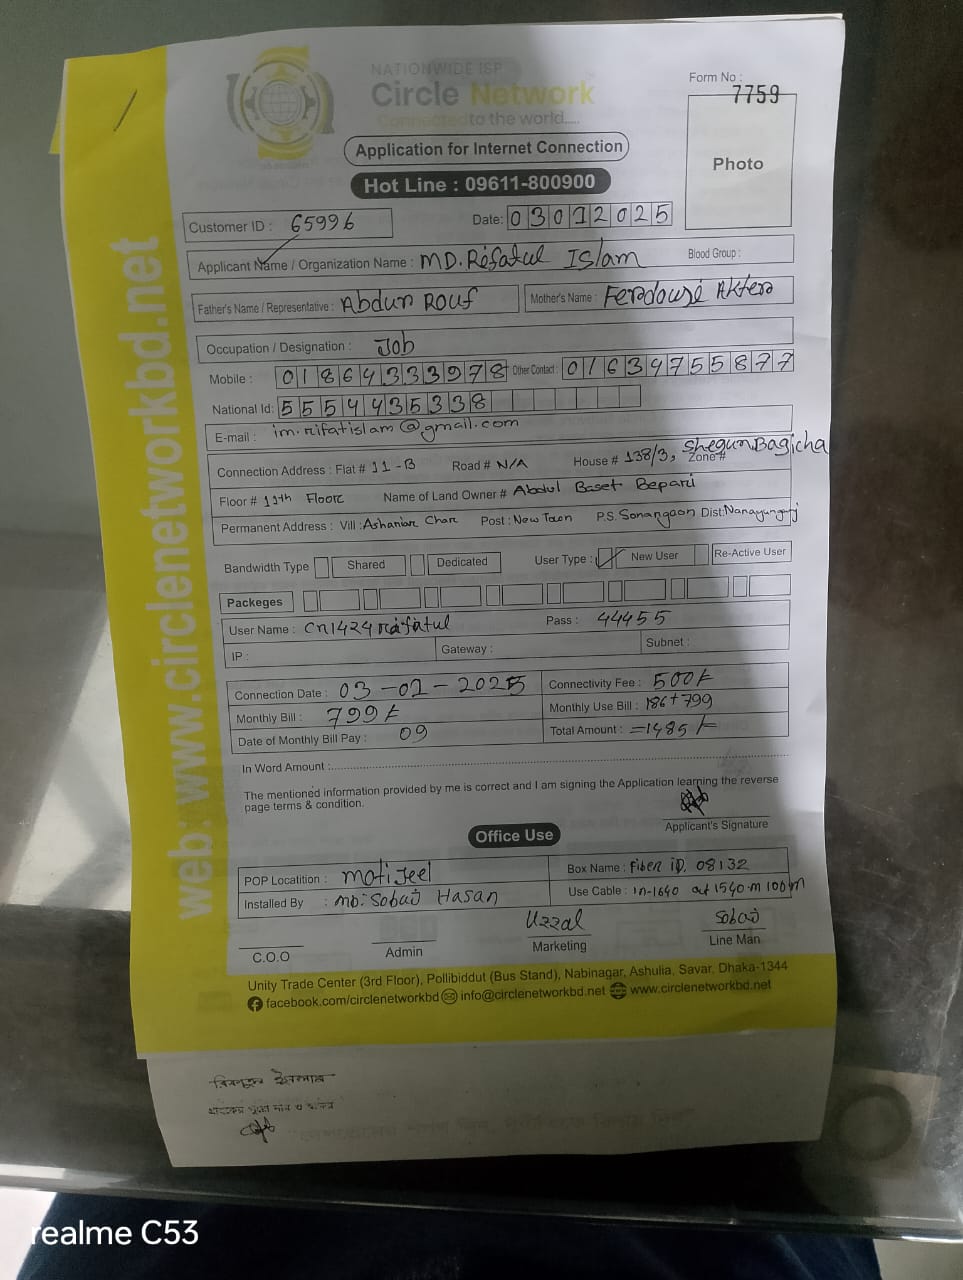 NATIONWIDE ISP
Circle Network
Connected to the world.....
Form No :
7759
Photo
Application for Internet Connection
Hot Line : 09611-800900
Customer ID : 65996
Date: 03012025
Applicant Name / Organization Name : MD. Rifatul Islam Blood Group :
Father's Name / Representative : Abdur Rouf Mother's Name : Ferdousi Akter
Occupation / Designation : Job
Mobile : 01864333978 Other Contact : 01639755877
National Id: 5554435338
E-mail : im.rifatislam@gmail.com
Connection Address : Flat # 11-B Road # N/A House # 138/3, Shegun Bagicha Zone #
Floor # 11th Floor Name of Land Owner # Abdul Baset Bepari
Permanent Address : Vill : Ashariar Char Post : New Town P.S. Sonargaon Dist: Narayungonj
Bandwidth Type Shared Dedicated User Type : New User Re-Active User
Packeges
User Name : cn1424rifatul Pass : 44455
IP : Gateway : Subnet :
Connection Date : 03-01-2025 Connectivity Fee : 500/-
Monthly Bill : 799/- Monthly Use Bill : 186+799
Date of Monthly Bill Pay : 09 Total Amount : =1485/-
In Word Amount :
The mentioned information provided by me is correct and I am signing the Application learning the reverse
page terms & condition.
Applicant's Signature
Office Use
POP Locatition : Motijeel Box Name : Fiber iD, 08132
Installed By : MD: Sobuj Hasan Use Cable : in-1640 out 1540 m 100m
Uzzal Sobuj
C.O.O Admin Marketing Line Man
Unity Trade Center (3rd Floor), Pollibiddut (Bus Stand), Nabinagar, Ashulia, Savar, Dhaka-1344
facebook.com/circlenetworkbd info@circlenetworkbd.net www.circlenetworkbd.net
web : www.circlenetworkbd.net
realme C53